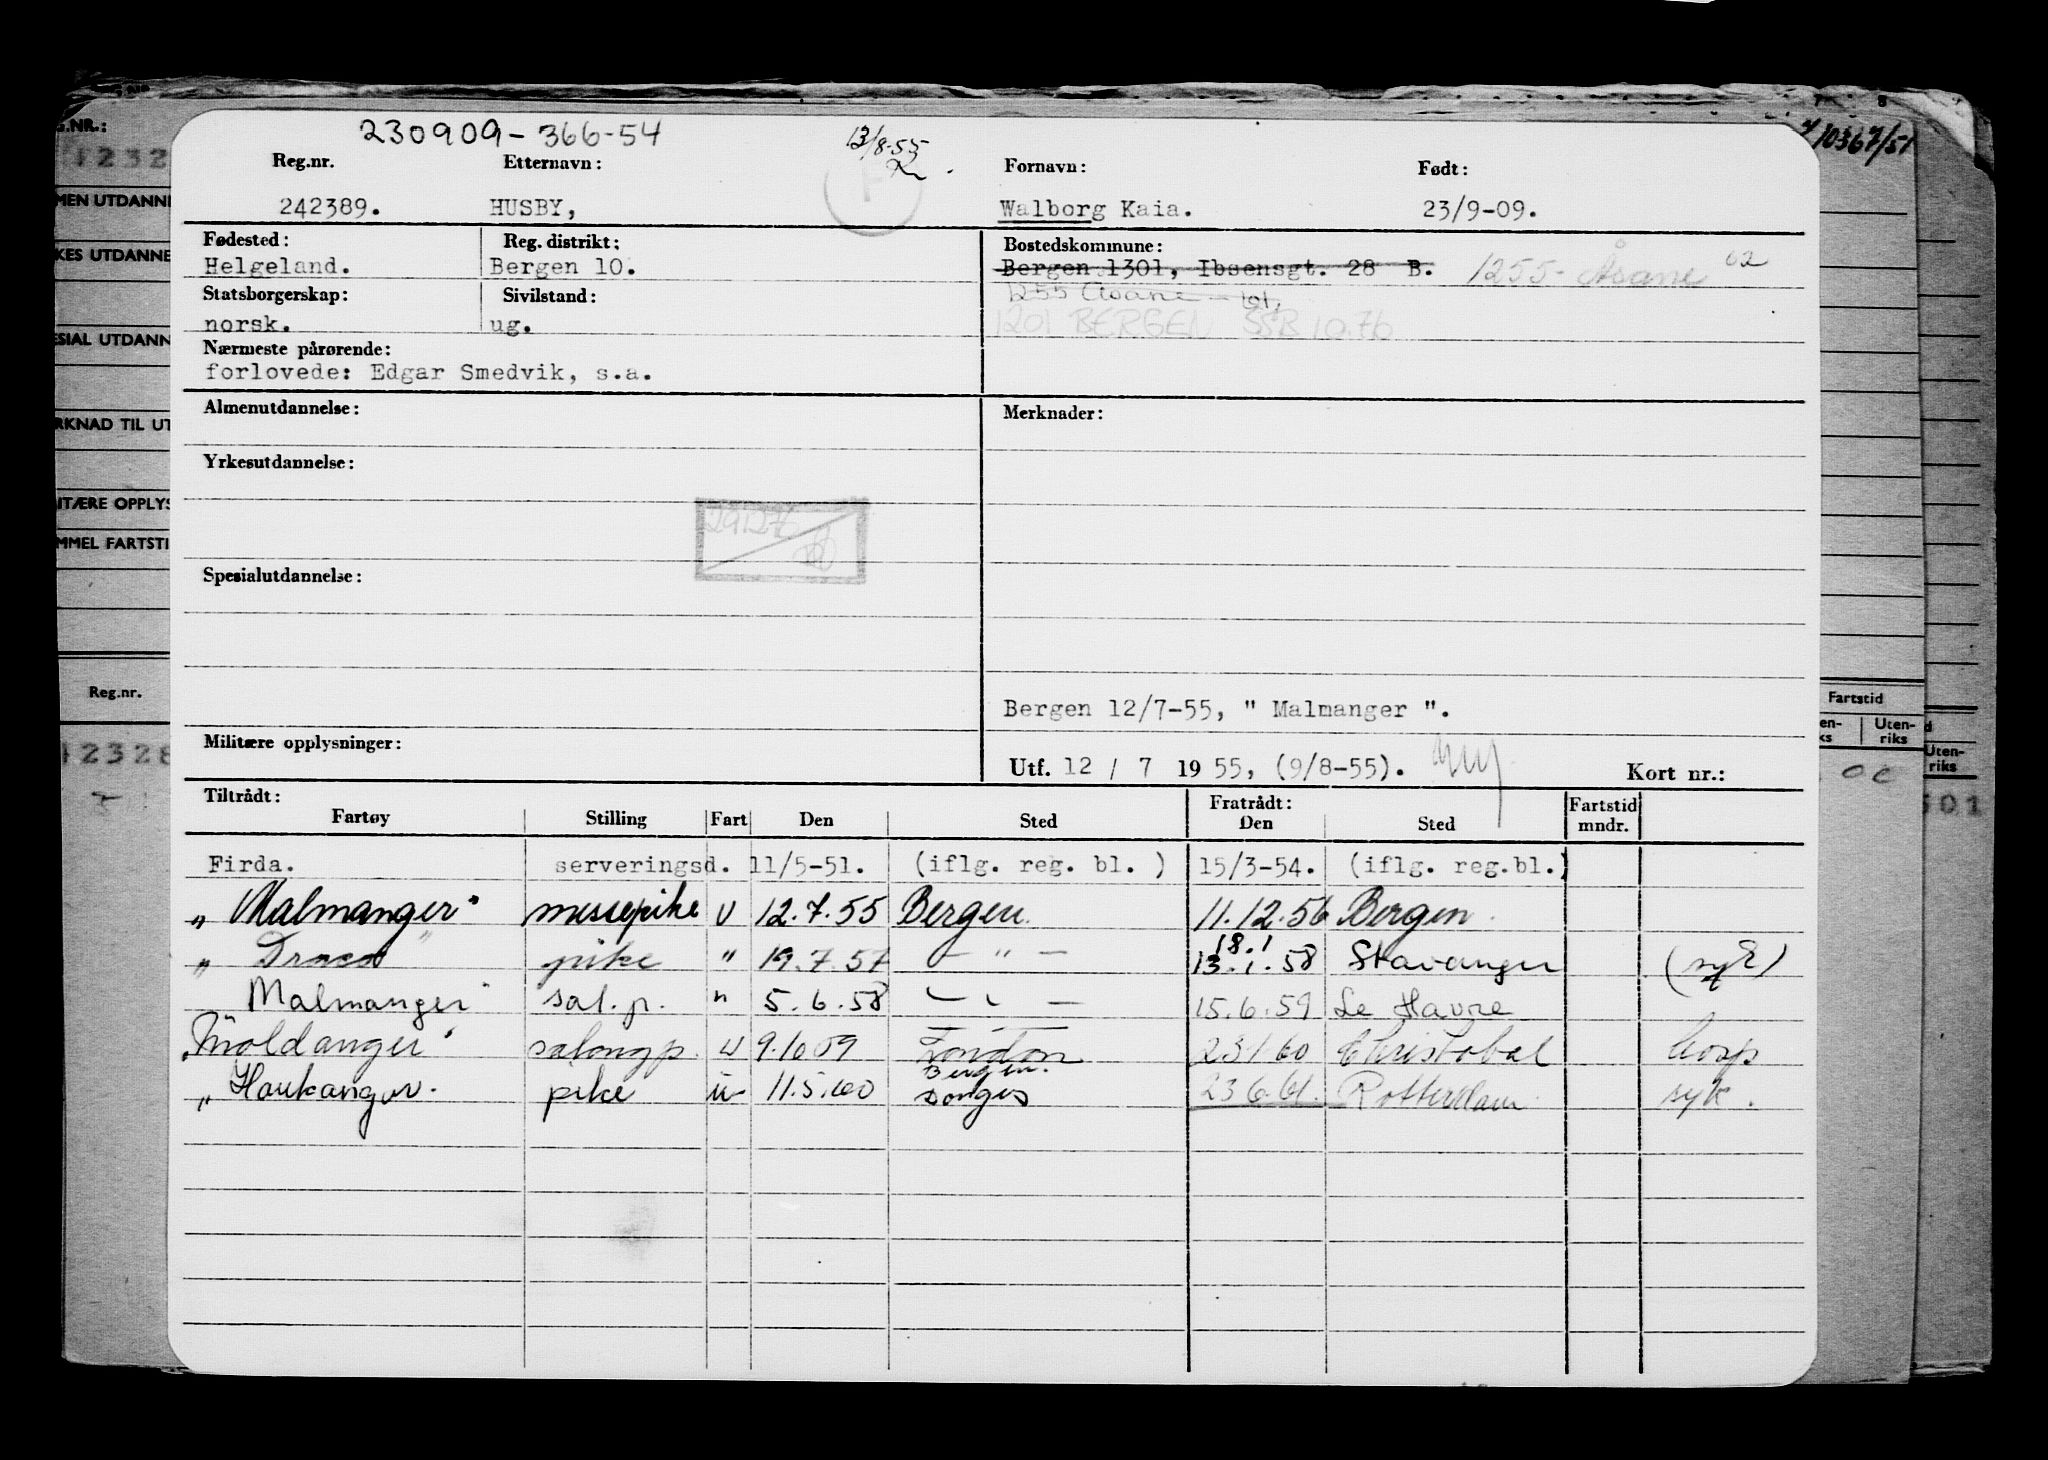 230909-366-54
13/8-55
Reg.nr. Etternavn: Fornavn: Født:
242389. HUSBY, Walborg Kaia. 23/9-09.
Fødested: Reg. distrikt: Bostedskommune:
Helgeland. Bergen 10. Bergen 1301, Ibsensgt. 28 B. 1255- Åsane 02
Statsborgerskap: Sivilstand: 1255 Åsane
norsk. ug. 1201 BERGEN SSB 10.76
Nærmeste pårørende:
forlovede: Edgar Smedvik, s.a.
Almenutdannelse: Merknader:
Yrkesutdannelse:
291276
Spesialutdannelse:
Bergen 12/7-55, " Malmanger ".
Militære opplysninger:
Utf. 12 / 7 19 55, (9/8-55). Kort nr.:
Tiltrådt: Fratrådt: Fartstid
Fartøy Stilling Fart Den Sted Den Sted mndr.
Firda. serveringsd. 11/5-51. (iflg. reg. bl. ) 15/3-54. (iflg. reg.bl.)
" Malmanger" messepike U 12.7.55 Bergen 11.12.56 Bergen
18.1
" Draco" pike " 19.7.57 — " — 13.1.58 Stavanger (syk)
Malmanger" sal.p. " 5.6.58 — " — 15.6.59 Le Havre
"Moldanger" salongp. U 9.10 59 London 23 1 60 Christobal hosp
Bergen.
"Haukanger. pike u 11.5.60 23 6.61. Rotterdam syk.
G.NR.:
1232
MEN UTDANNE
KES UTDANNE
ESIAL UTDANN
RKNAD TIL UT
ITÆRE OPPLYS
MMEL FARTSTI
Reg.nr.
12328
10367/51
8
Fartstid
en-
ks Uten-
riks
Uten-
riks
501